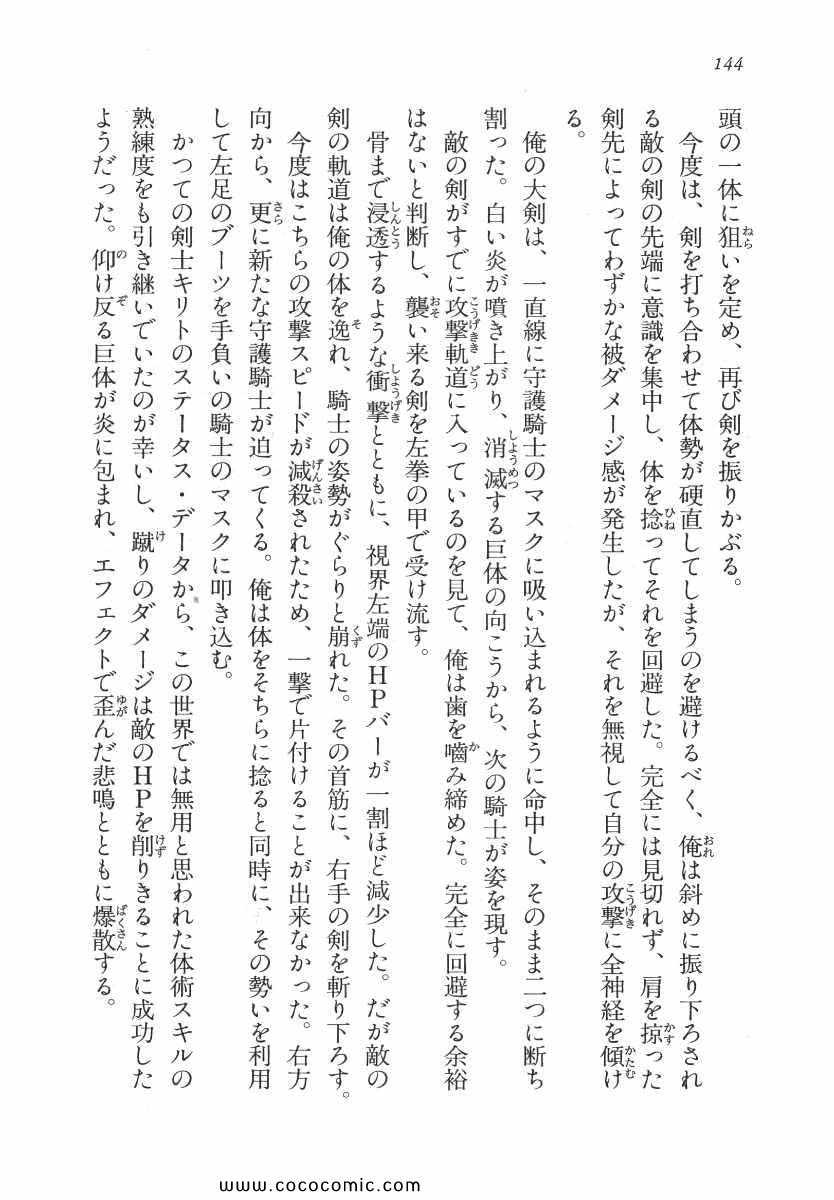 144
頭の一体に狙いを定め、再び剣を振りかぶる。
　今度は、剣を打ち合わせて体勢が硬直してしまうのを避けるべく、俺は斜めに振り下ろされ
る敵の剣の先端に意識を集中し、体を捻ってそれを回避した。完全には見切れず、肩を掠った
剣先によってわずかな被ダメージ感が発生したが、それを無視して自分の攻撃に全神経を傾け
る。
　俺の大剣は、一直線に守護騎士のマスクに吸い込まれるように命中し、そのまま二つに断ち
割った。白い炎が噴き上がり、消滅する巨体の向こうから、次の騎士が姿を現す。
　敵の剣がすでに攻撃軌道に入っているのを見て、俺は歯を嚙み締めた。完全に回避する余裕
はないと判断し、襲い来る剣を左拳の甲で受け流す。
　骨まで浸透するような衝撃とともに、視界左端のＨＰバーが一割ほど減少した。だが敵の
剣の軌道は俺の体を逸れ、騎士の姿勢がぐらりと崩れた。その首筋に、右手の剣を斬り下ろす。
　今度はこちらの攻撃スピードが減殺されたため、一撃で片付けることが出来なかった。右方
向から、更に新たな守護騎士が迫ってくる。俺は体をそちらに捻ると同時に、その勢いを利用
して左足のブーツを手負いの騎士のマスクに叩き込む。
　かつての剣士キリトのステータス・データから、この世界では無用と思われた体術スキルの
熟練度をも引き継いでいたのが幸いし、蹴りのダメージは敵のＨＰを削りきることに成功した
ようだった。仰け反る巨体が炎に包まれ、エフェクトで歪んだ悲鳴とともに爆散する。
www.cococomic.com